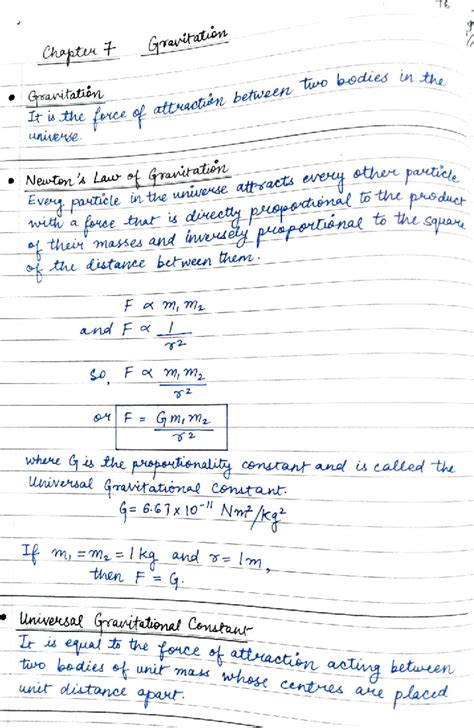 76
Chapter 7 Gravitation
• Gravitation
It is the force of attraction between two bodies in the
universe.
• Newton's Law of Gravitation
Every particle in the universe attracts every other particle
with a force that is directly proportional to the product
of their masses and inversely proportional to the square
of the distance between them.
F ∝ m₁ m₂
and F ∝ 1/r²
So, F ∝ m₁ m₂/r²
or F = G m₁ m₂/r²
where G is the proportionality constant and is called the
Universal Gravitational Constant.
G = 6.67 x 10⁻¹¹ Nm²/kg²
If m₁ = m₂ = 1 kg and r = 1m,
then F = G.
• Universal Gravitational Constant
It is equal to the force of attraction acting between
two bodies of unit mass whose centres are placed
unit distance apart.